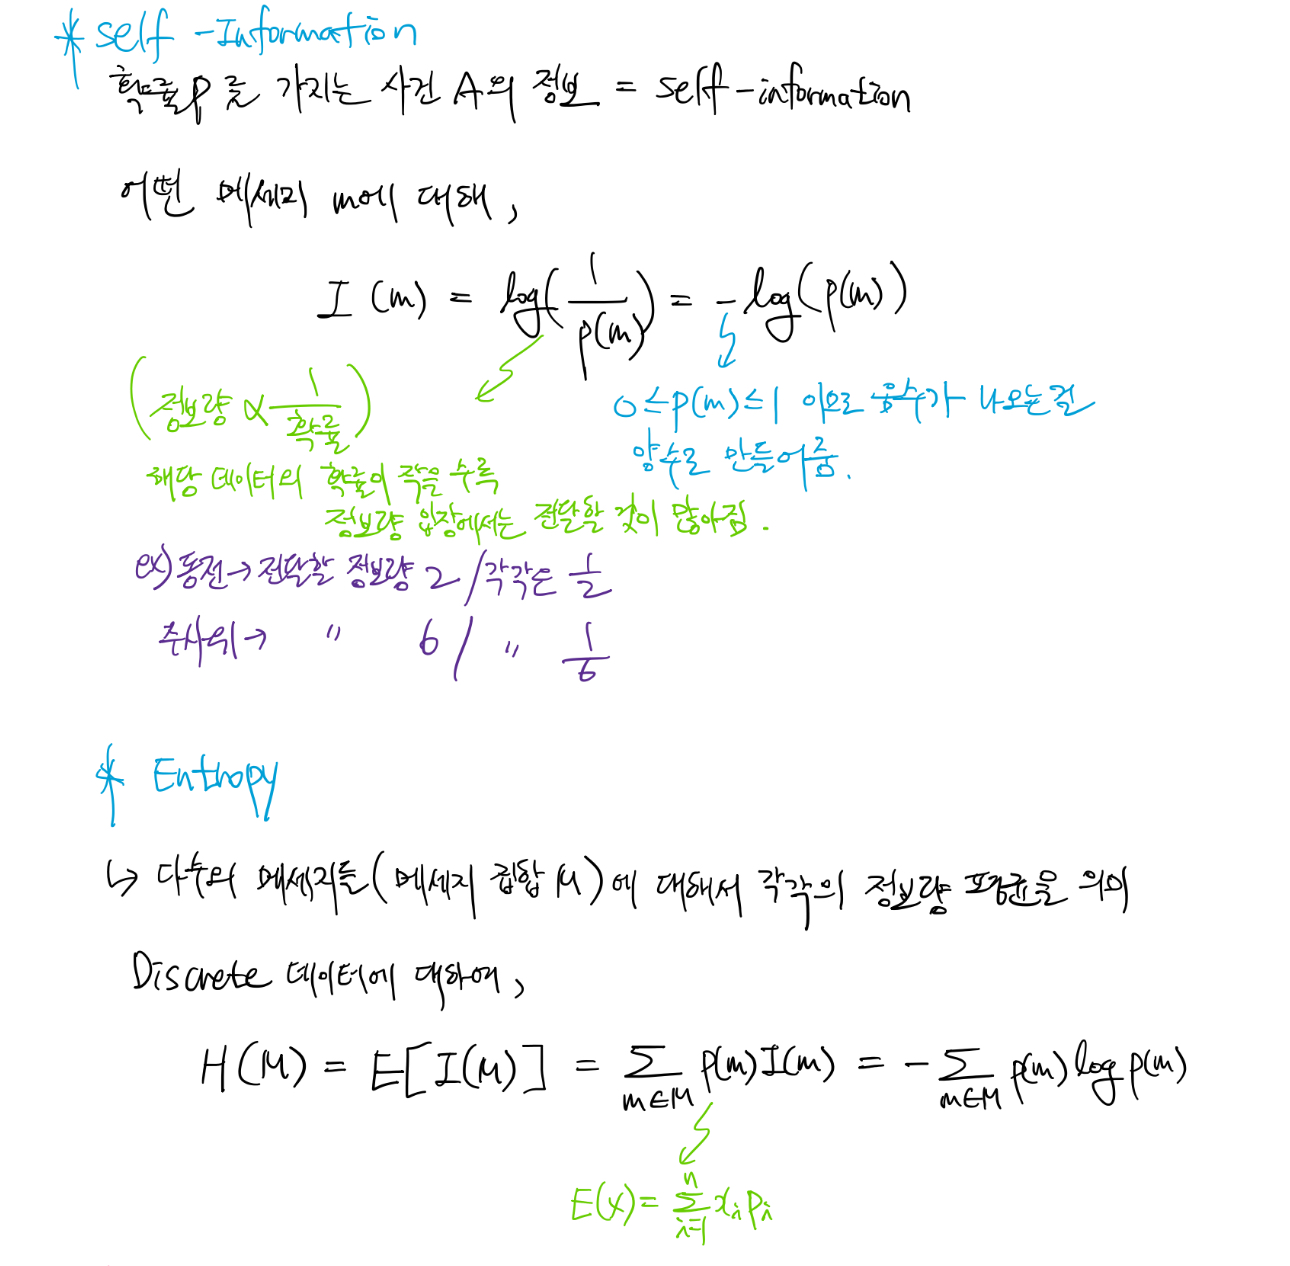 * self -Information
확률 p를 가지는 사건 A의 정보 = self-information
어떤 메세지 m에 대해,
I (m) = log(1/p(m)) = -log(p(m))
(정보량 ∝ 1/확률)
0≤p(m)≤1 이므로 음수가 나오는걸
양수로 만들어줌.
해당 데이터의 확률이 작을 수록
정보량 입장에서는 전달할 것이 많아짐.
ex) 동전→ 전달할 정보량 2 / 각각은 1/2
주사위→ " 6 / " 1/6
* Entropy
↳ 다수의 메세지들(메세지 집합 M)에 대해서 각각의 정보량 평균을 의미
Discrete 데이터에 대하여,
H(M) = E[I(M)] = ∑m∈M p(m)I(m) = -∑m∈M p(m)log p(m)
E(x)=∑i=1n xi pi